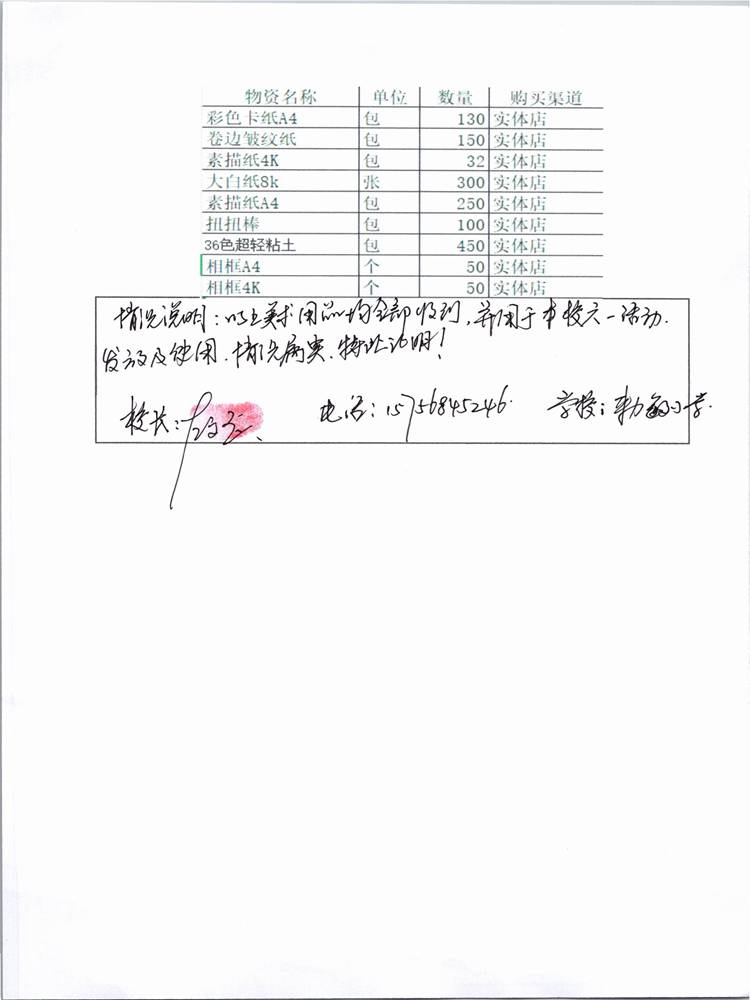 物资名称 单位 数量 购买渠道
彩色卡纸A4 包 130 实体店
卷边皱纹纸 包 150 实体店
素描纸4K 包 32 实体店
大白纸8k 张 300 实体店
素描纸A4 包 250 实体店
扭扭棒 包 100 实体店
36色超轻粘土 包 450 实体店
相框A4 个 50 实体店
相框4K 个 50 实体店
情况说明:以上美术用品均全部收到,并用于本校六一活动.
发放及使用.情况属实.特此说明!
校长: 电话:15756845246. 学校: 小学.